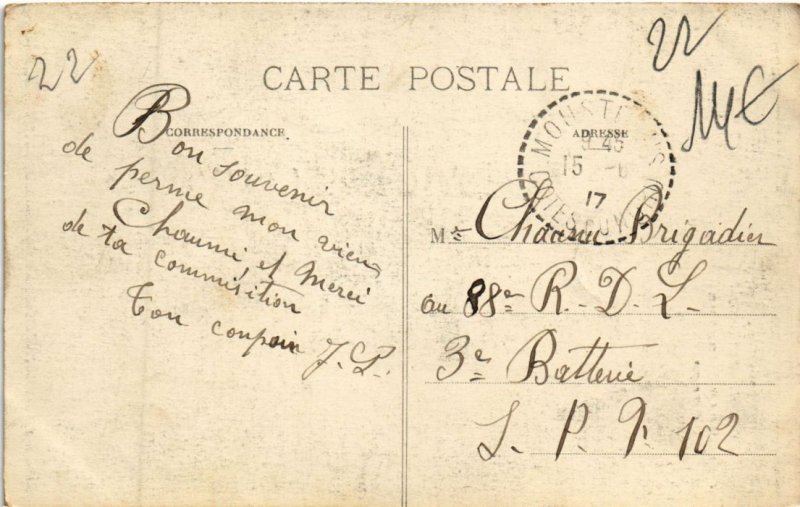 22
22
14€
CARTE POSTALE
CORRESPONDANCE
ADRESSE
9 45
15 -6
17
Bon souvenir
de perme mon vieux
Chaumi, et Merci
de ta commisition
Ton coupain J. P.
Mr Chaumi Brigadier
au 88e R. D. L.
3e Batterie
S. P. 9. 102